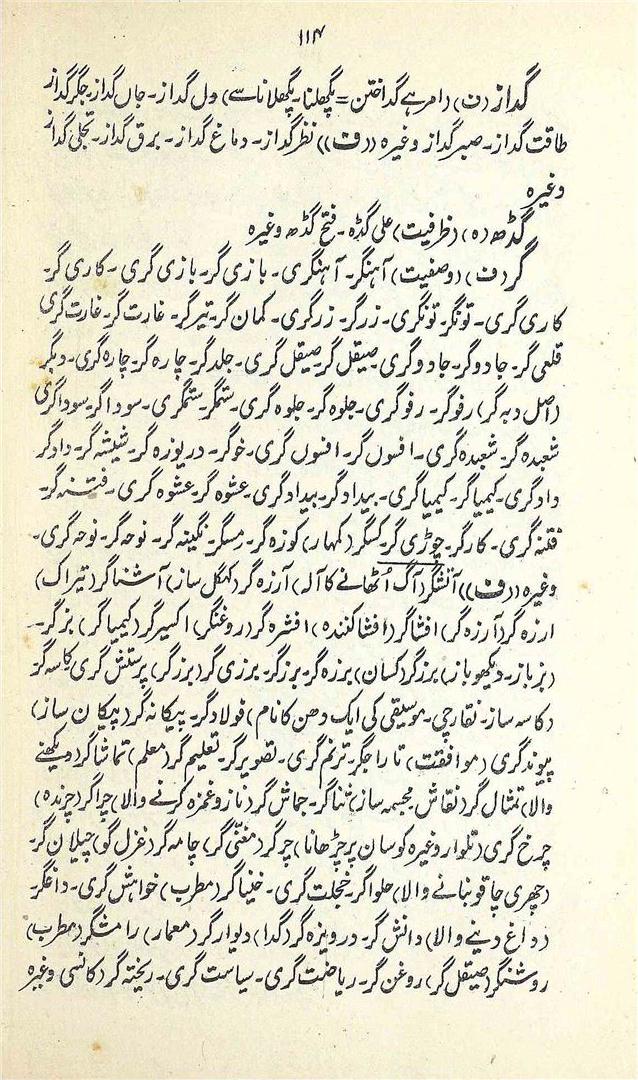 ۱۱۴
گداز (ف) (امر ہے گداختن = پگھلنا۔ پگھلانا سے) دل گداز۔ جاں گداز۔ جگر گداز
طاقت گداز۔ صبر گداز وغیرہ ((ف)) نظر گداز۔ دماغ گداز۔ برق گداز۔ تجلی گداز
وغیرہ
گڈھ (ہ) (ظرفیت) علی گڈھ۔ فتح گڈھ وغیرہ
گر (ف) (وصفیت) آہنگر۔ آہنگری۔ بازی گر۔ بازی گری۔ کاری گر۔
کاری گری۔ تونگر۔ تونگری۔ زرگر۔ زرگری۔ کمان گر۔ تیر گر۔ غارت گر۔ غارت گری
قلعی گر۔ جادوگر۔ جادوگری۔ صیقل گر۔ صیقل گری۔ جلد گر۔ چارہ گر۔ چارہ گری۔ دبگر
(اصل دبہ گر) رفوگر۔ رفوگری۔ جلوہ گر۔ جلوہ گری۔ ستمگر۔ ستمگری۔ سوداگر۔ سوداگری
شعبدہ گر۔ شعبدہ گری۔ افسوں گر۔ افسوں گری۔ خوگر۔ دریوزہ گر۔ شیشہ گر۔ دادگر
دادگری۔ کیمیاگر۔ کیمیاگری۔ بیدادگر۔ بیدادگری۔ عشوہ گر۔ عشوہ گری۔ فتنہ گر۔
فتنہ گری۔ کارگر۔ چوڑی گر۔ کسگر (کمہار) کوزہ گر۔ مسگر۔ نگینہ گر۔ نوحہ گر۔ نوحہ گری۔
وغیرہ ((ف)) آتشگر (آگ اُٹھانے کا آلہ) آرزہ گر (کہگل ساز) آشناگر (تیراک)
ارزہ گر (آرزہ گر) افشاگر (افشا کنندہ) افشرہ گر (روغنگر) اکسیر گر (کیمیاگر) بزگر۔
(بزباز۔ دیکھو باز) برزگر (کسان) برزہ گر۔ برزگر۔ برزی گر (برزگر) پرستش گری۔ کاسہ گر
(کاسہ ساز۔ نقارچی۔ موسیقی کی ایک دھن کا نام) فولادگر۔ پیکانہ گر (پیکان ساز)
پیوندگری (موافقت) تاراجگر۔ ترنم گری۔ تصویر گر۔ تعلیم گر (معلم) تماشاگر (دیکھنے
والا) تمثال گر (نقاش مجسمہ ساز) ثناگر۔ جماش گر (ناز و غمزہ کرنے والا) چراگر (چرندہ)
چرخ گری (تلوار وغیرہ کو سان پر چڑھانا) چرگر (مغنی گر) چامہ گر (غزل گو) چیلان گر
(چھری چاقو بنانے والا) حلواگر۔ خجلت گری۔ خنیاگر (مطرب) خواہش گری۔ داغگر
(داغ دینے والا) دانش گر۔ درویزہ گر (گدا) دیوارگر (معمار) رامشگر (مطرب)
روشنگر (صیقل گر) روغن گر۔ ریاضت گری۔ سیاست گری۔ ریختہ گر (کانسی وغیرہ